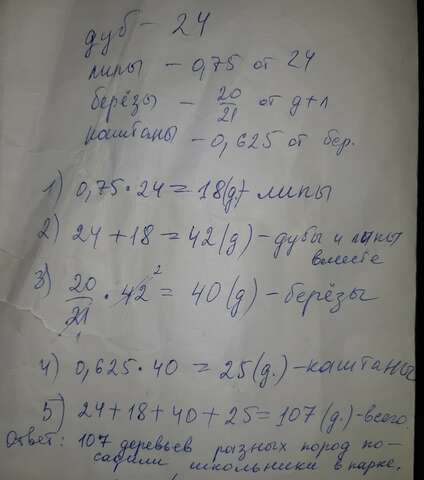 дуб - 24
липы - 0,75 от 24
берёзы - 20/21 от д+л
каштаны - 0,625 от бер.
1) 0,75 · 24 = 18(д) - липы
2) 24 + 18 = 42(д) - дубы и липы
вместе
3) 20/21 · 42² = 40(д) - берёзы
4) 0,625 · 40 = 25(д.) - каштаны
5) 24 + 18 + 40 + 25 = 107(д.) - всего.
Ответ: 107 деревьев разных пород по-
садили школьники в парке.